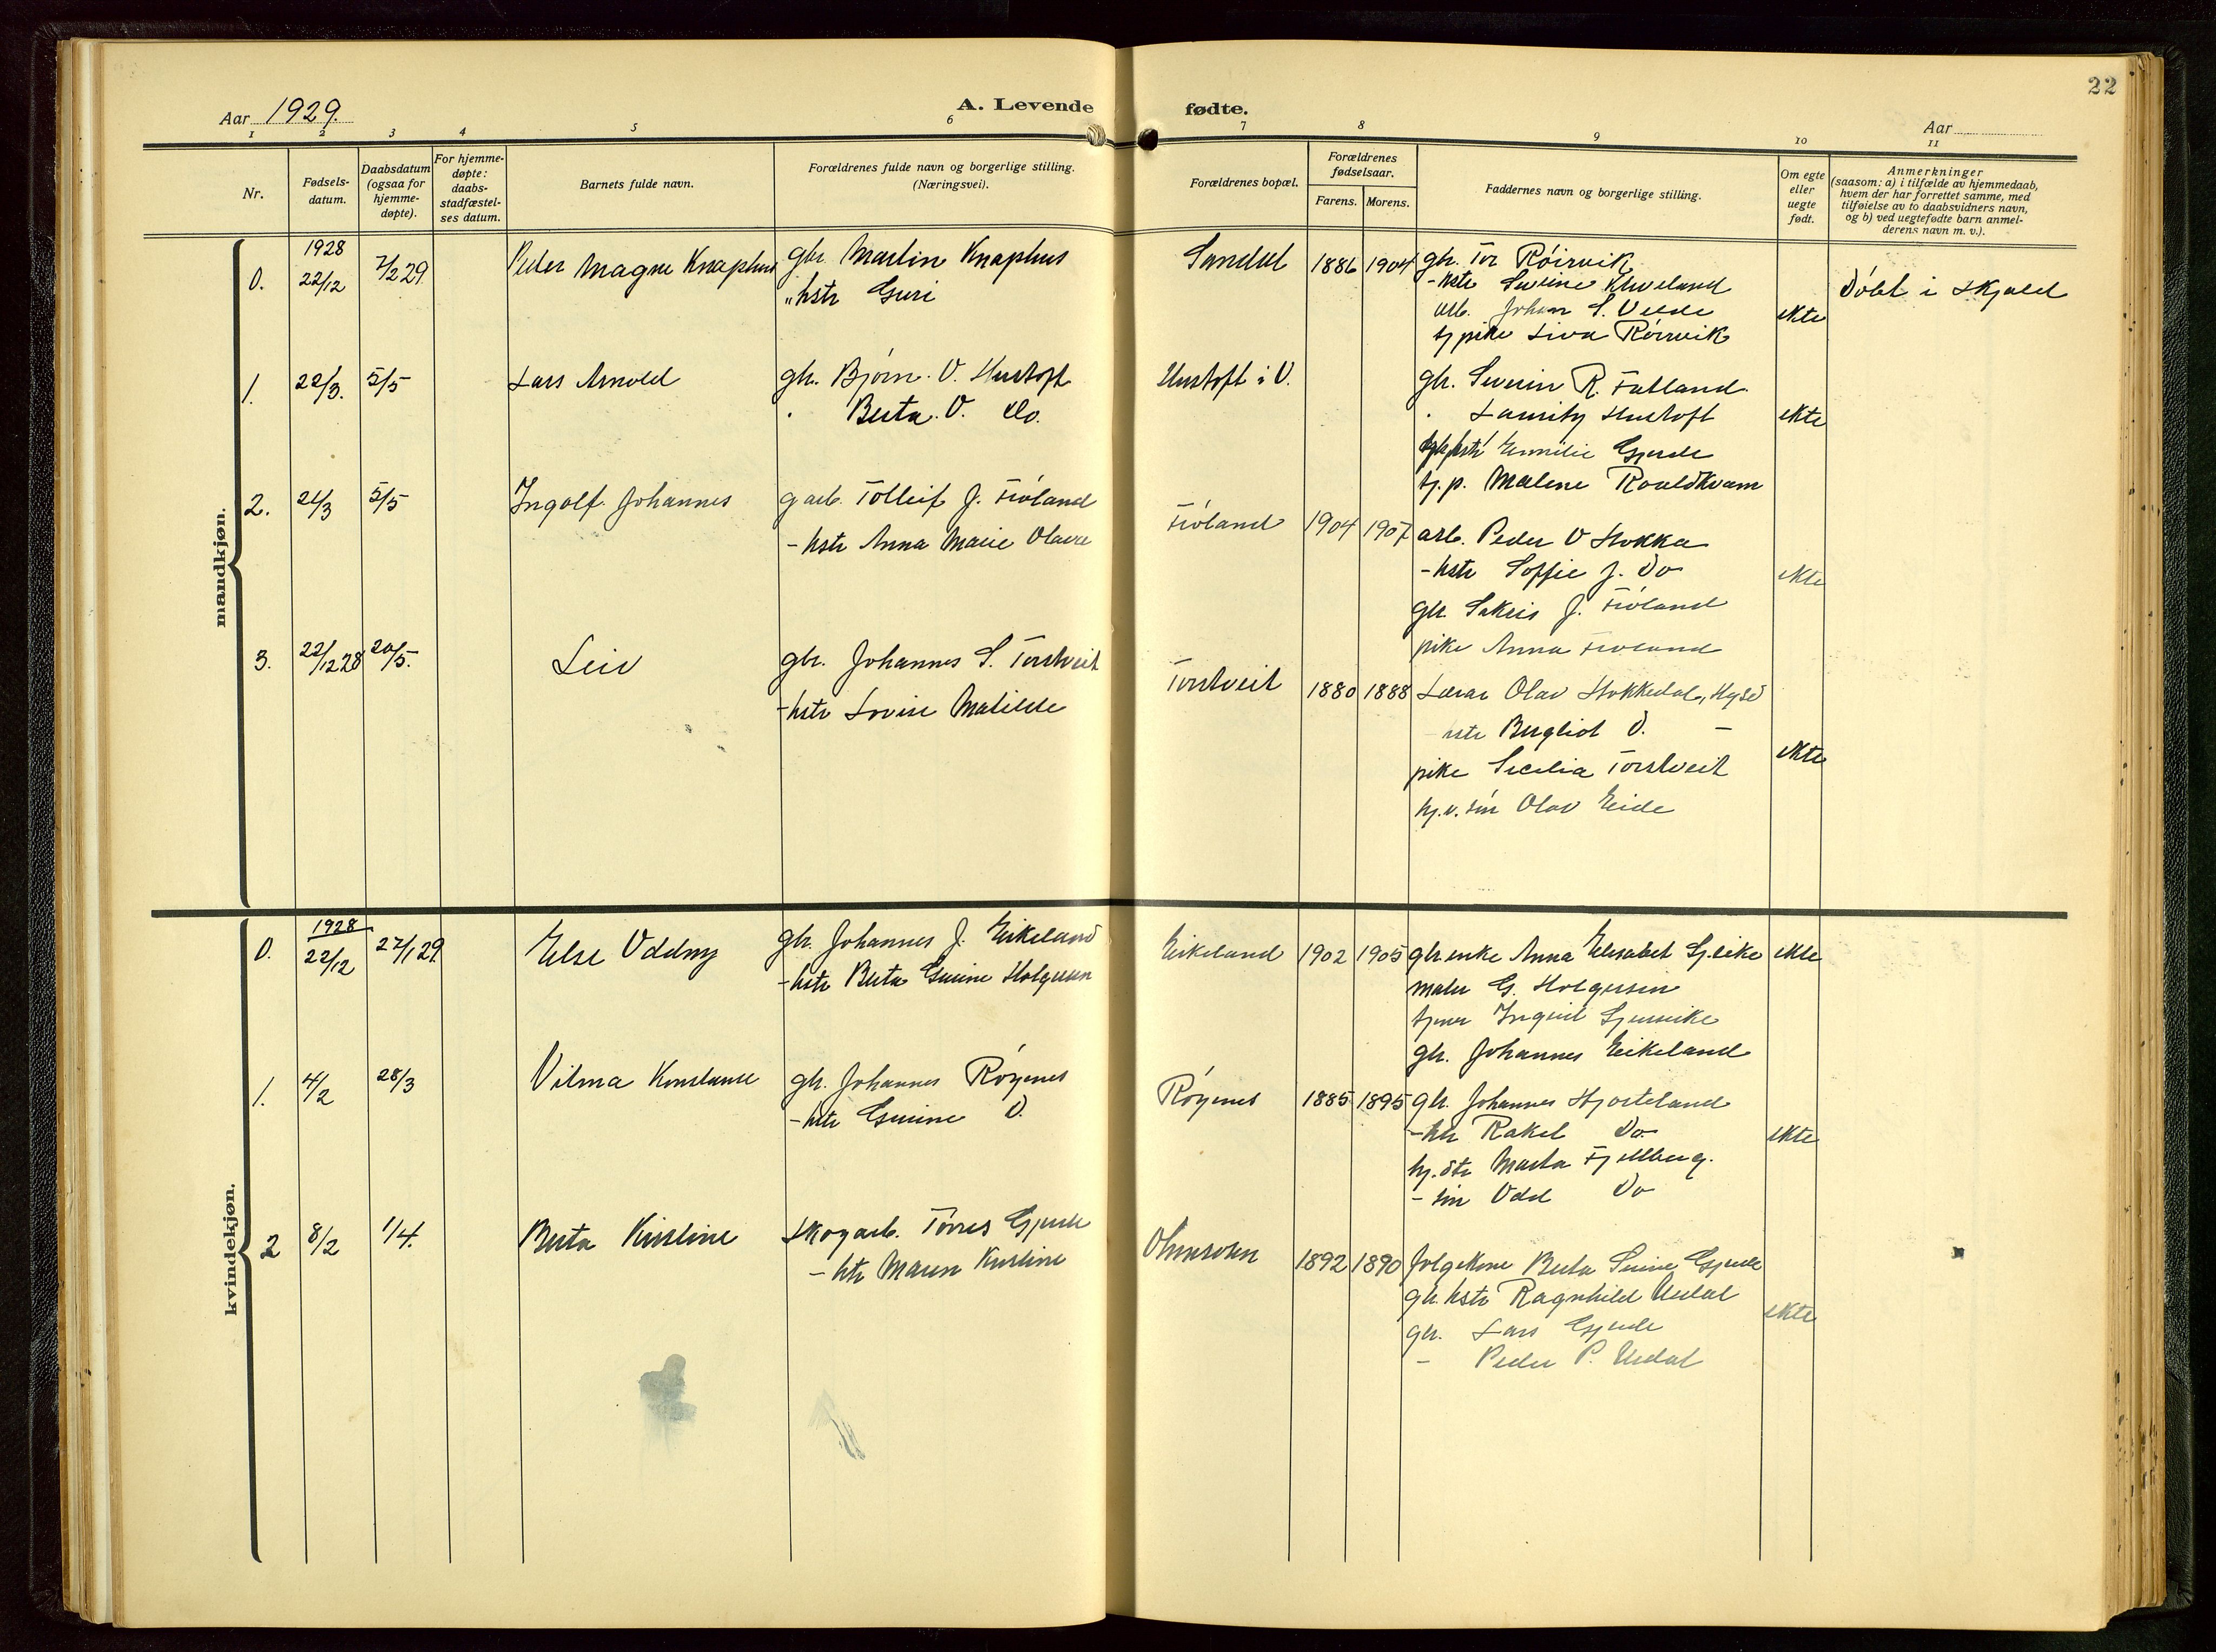 22
Aar 1929.
A. Levende fødte.
Aar
1 2 3 4 5 6 7 8 9 10 11
Nr.
Fødsels-
datum.
Daabsdatum
(ogsaa for
hjemme-
døpte).
For hjemme-
døpte:
daabs-
stadfæstel-
ses datum.
Barnets fulde navn.
Forældrenes fulde navn og borgerlige stilling.
(Næringsvei).
Forældrenes bopæl.
Forældrenes
fødselsaar.
Farens. Morens.
Faddernes navn og borgerlige stilling.
Om egte
eller
uegte
født.
Anmerkninger
(saasom: a) i tilfælde av hjemmedaab,
hvem der har forrettet samme, med
tilføielse av to daabsvidners navn,
og b) ved uegtefødte barn anmel-
derens navn m. v.).
mandkjøn.
0. 1928 22/12 7/2 29 Peder Magne Knaphus
gbr. Martin Knaphus
" hstr Guri
Sandal 1886 1904
gbr. Tor Róirvik
- hstr Kluveland
arb. Johan S. Velde
tj pike Liva Róirvik
ekte
Dóbt i Skjold
1. 22/3. 5/5 Lars Arnold
gbr. Bjórn. V. Hustoft
Berta. V. do.
Hustoft i V.
gbr. Severin R. Fatland
Hustoft
Emilie Gjerde
tj. p. Malene
ekte
2. 21/3 5/5 Ingolf Johannes
g arb. Tolleif J. Fróland
- hstr Anna Marie
Fróland 1904 1907.
arb. Peder V Stokka
- hstr Soffie J. Do
gbr. Sakris J. Fróland
pike Anna Fróland
ekte
3. 22/12 28 20/5. Leiv
gbr. Johannes S. Torstveit
- hstr Lovise Matilde
Torstveit 1880 1888
Lærar Olav Stokkedal,
hstr Bergliot D. -
pike Secelia Torstveit
hj. v. sin Olav Eide
ekte
kvindekjøn.
0. 1928 22/12 27/1 29. Else Oddny
gbr. Johannes J. Eikeland
- hstr Berta Holgersen
Eikeland 1902 1905
gbr enke Anna Elisabet
maler G. Holgersen
gbr. Johannes Eikeland
ekte
1. 4/2 28/3 Vilma Konstanse
gbr. Johannes Róyenes
- hstr D.
Róyenes 1885 1895
gbr. Johannes Hjorteland
- hstr Rakel Do.
hj. dtr Marta Fjellberg.
- sin Odd Do
ekte
2 8/2 1/4. Berta Kristine
Skogarb. Tórres Gjerde
- hstr Maren Kristine
1892 1890
Berta Gjerde
gbr. hstr Ragnhild
gbr. Lars Gjerde
- Peder P.
ekte